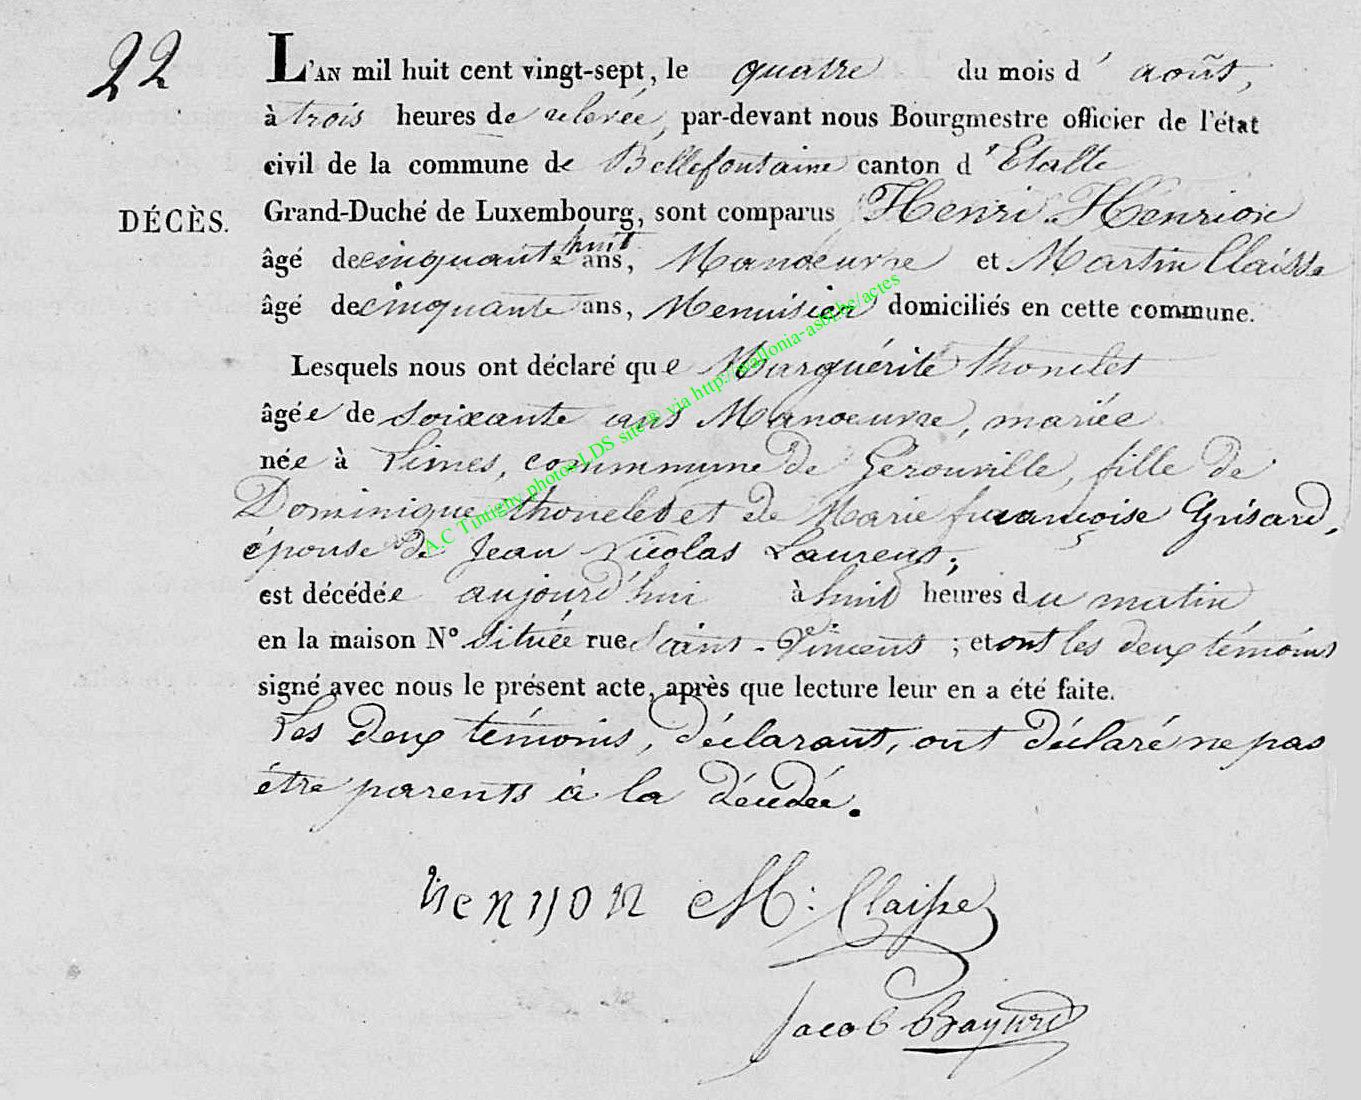 22
L'AN mil huit cent vingt-sept, le quatre du mois d'août,
à trois heures de relevée, par-devant nous Bourgmestre officier de l'état
civil de la commune de Bellefontaine canton d'Etalle
DÉCÈS.
Grand-Duché de Luxembourg, sont comparus Henri Henrion
huit
âgé de cinquante ans, Manoeuvre et Martin Claisse
âgé de cinquante ans, Menuisier domiciliés en cette commune.
Lesquels nous ont déclaré que Marguérite thonelet
âgée de soixante ans Manoeuvre, mariée
née à Limes, commune de Gérouville, fille de
Dominique thonelet et de Marie françoise Grisard,
épouse de Jean Nicolas Laurent,
est décédée aujourd'hui à huit heures du matin
en la maison N° située rue Saint-Vincent; et ont les deux témoins
signé avec nous le présent acte, après que lecture leur en a été faite.
Les deux témoins, déclarant, ont déclaré ne pas
être parents à la décédée.
henrion M: Claisse
Jacob Bayard
A.C Tintigny photos LDS site® via http://wallonia-asbl.be/actes